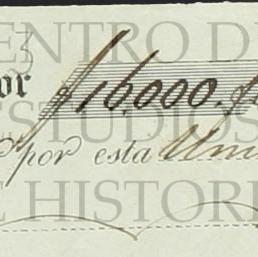 CENTRO DE
or $16,000.
ESTUDIOS
por esta Uni
DE HISTORI